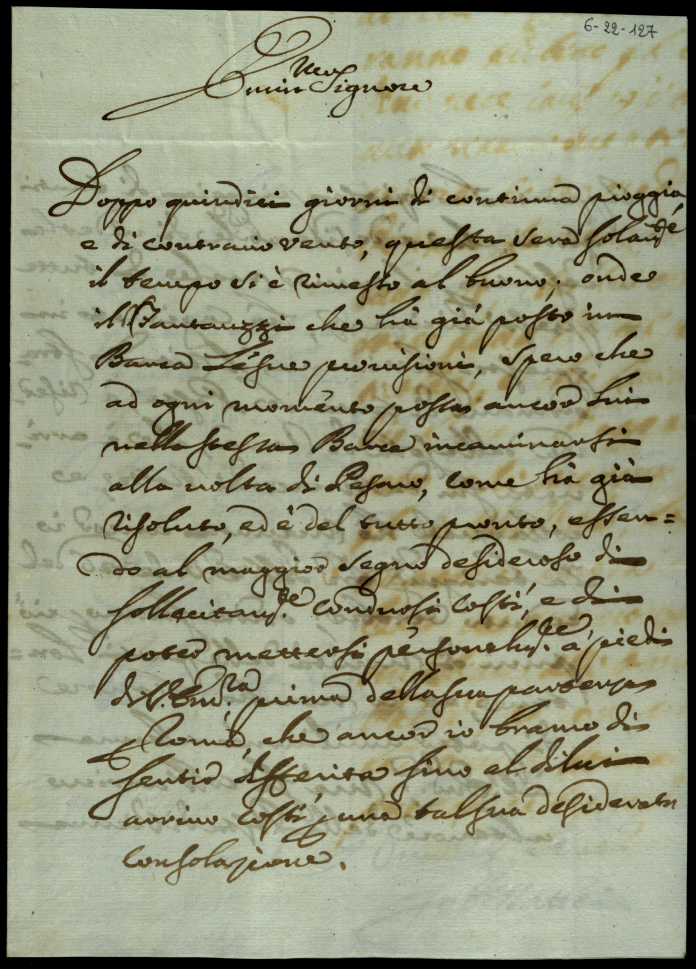 6-22-127
Emin.mo Signore
Doppo quindici giorni di continua pioggia,
e di contrario vento, questa sera solam.te
il tempo si è rimesso al buono; onde
il che hà già posto in
Barca le sue provisioni, spero che
ad ogni momento possa ancor lui
nella stessa Barca incaminarsi
alla volta di Pesaro, come hà già
risoluto, ed è del tutto pronto, essen=
do al maggior segno desideroso di
sollecitam.te condursi costì, e di
poter mettersi personalm.te a' piedi
di V. Em.za prima della sua partenza
p Roma, che ancor io bramo di
sentir differita sino al di lui
arrivo costì p una tal sua desiderata
consolazione.